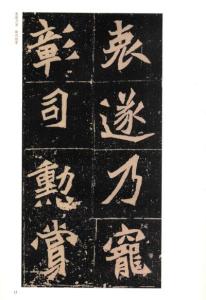 遂乃寵
彰司勳賞